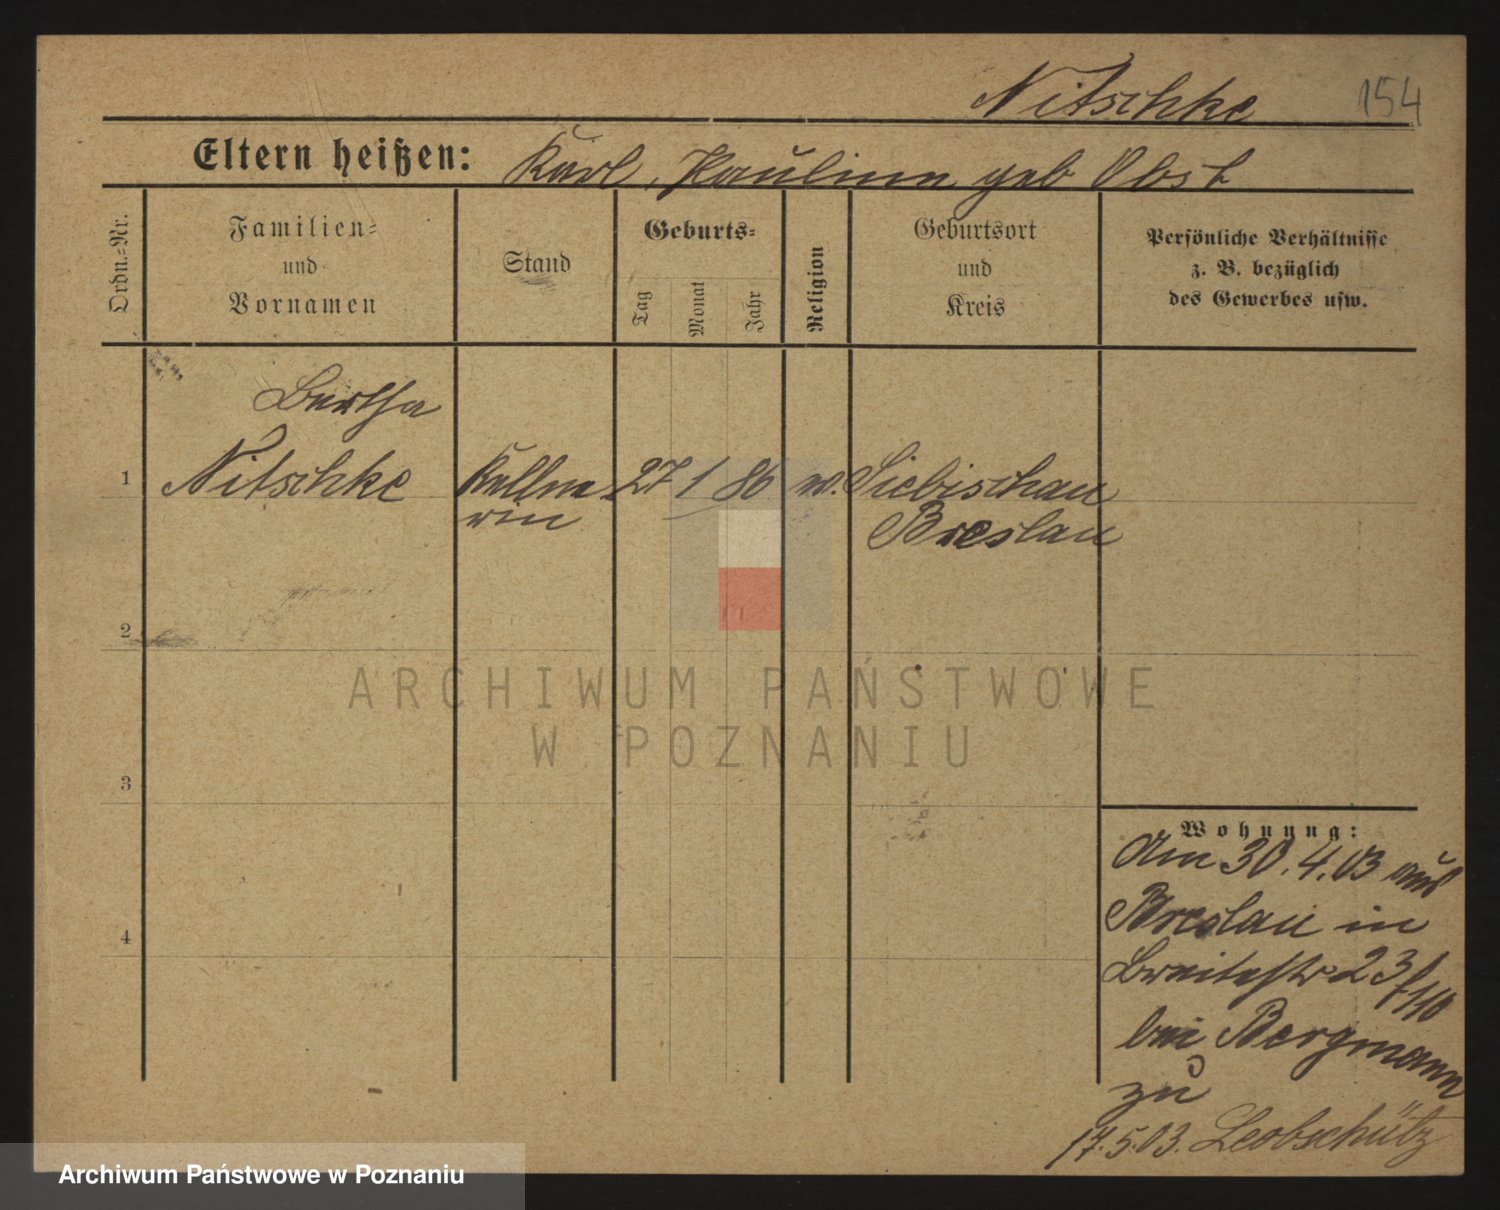 Nitschke 154
Eltern heißen: Karl, Pauline geb Obst
Ordn.-Nr.
Familien-
und
Vornamen
Stand
Geburts-
Tag
Monat
Jahr
Religion
Geburtsort
und
Kreis
Persönliche Verhältnisse
z. B. bezüglich
des Gewerbes usw.
Bertha
1 Nitschke Kellne 27 1 86 Siebischau
rin Breslau
2
ARCHIWUM PAŃSTWOWE
W POZNANIU
3
Wohnung:
Am 30.4.03 aus
Breslau in
4
Breitestr 23/110
bei Bergmann
zu
17.5.03. Leobschütz
Archiwum Państwowe w Poznaniu